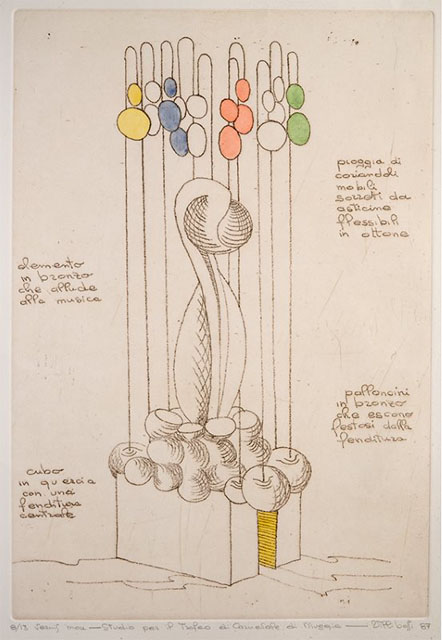 pioggia di
coriandoli
mobili
sorretti da
asticine
flessibili
in ottone
elemento
in bronzo
che allude
alla musica
palloncini
in bronzo
che escono
festosi dalla
fenditura
cubo
in quercia
con una
fenditura
centrale
8/13 — Studio per il Trofeo di Carnevale di Muggia — 87